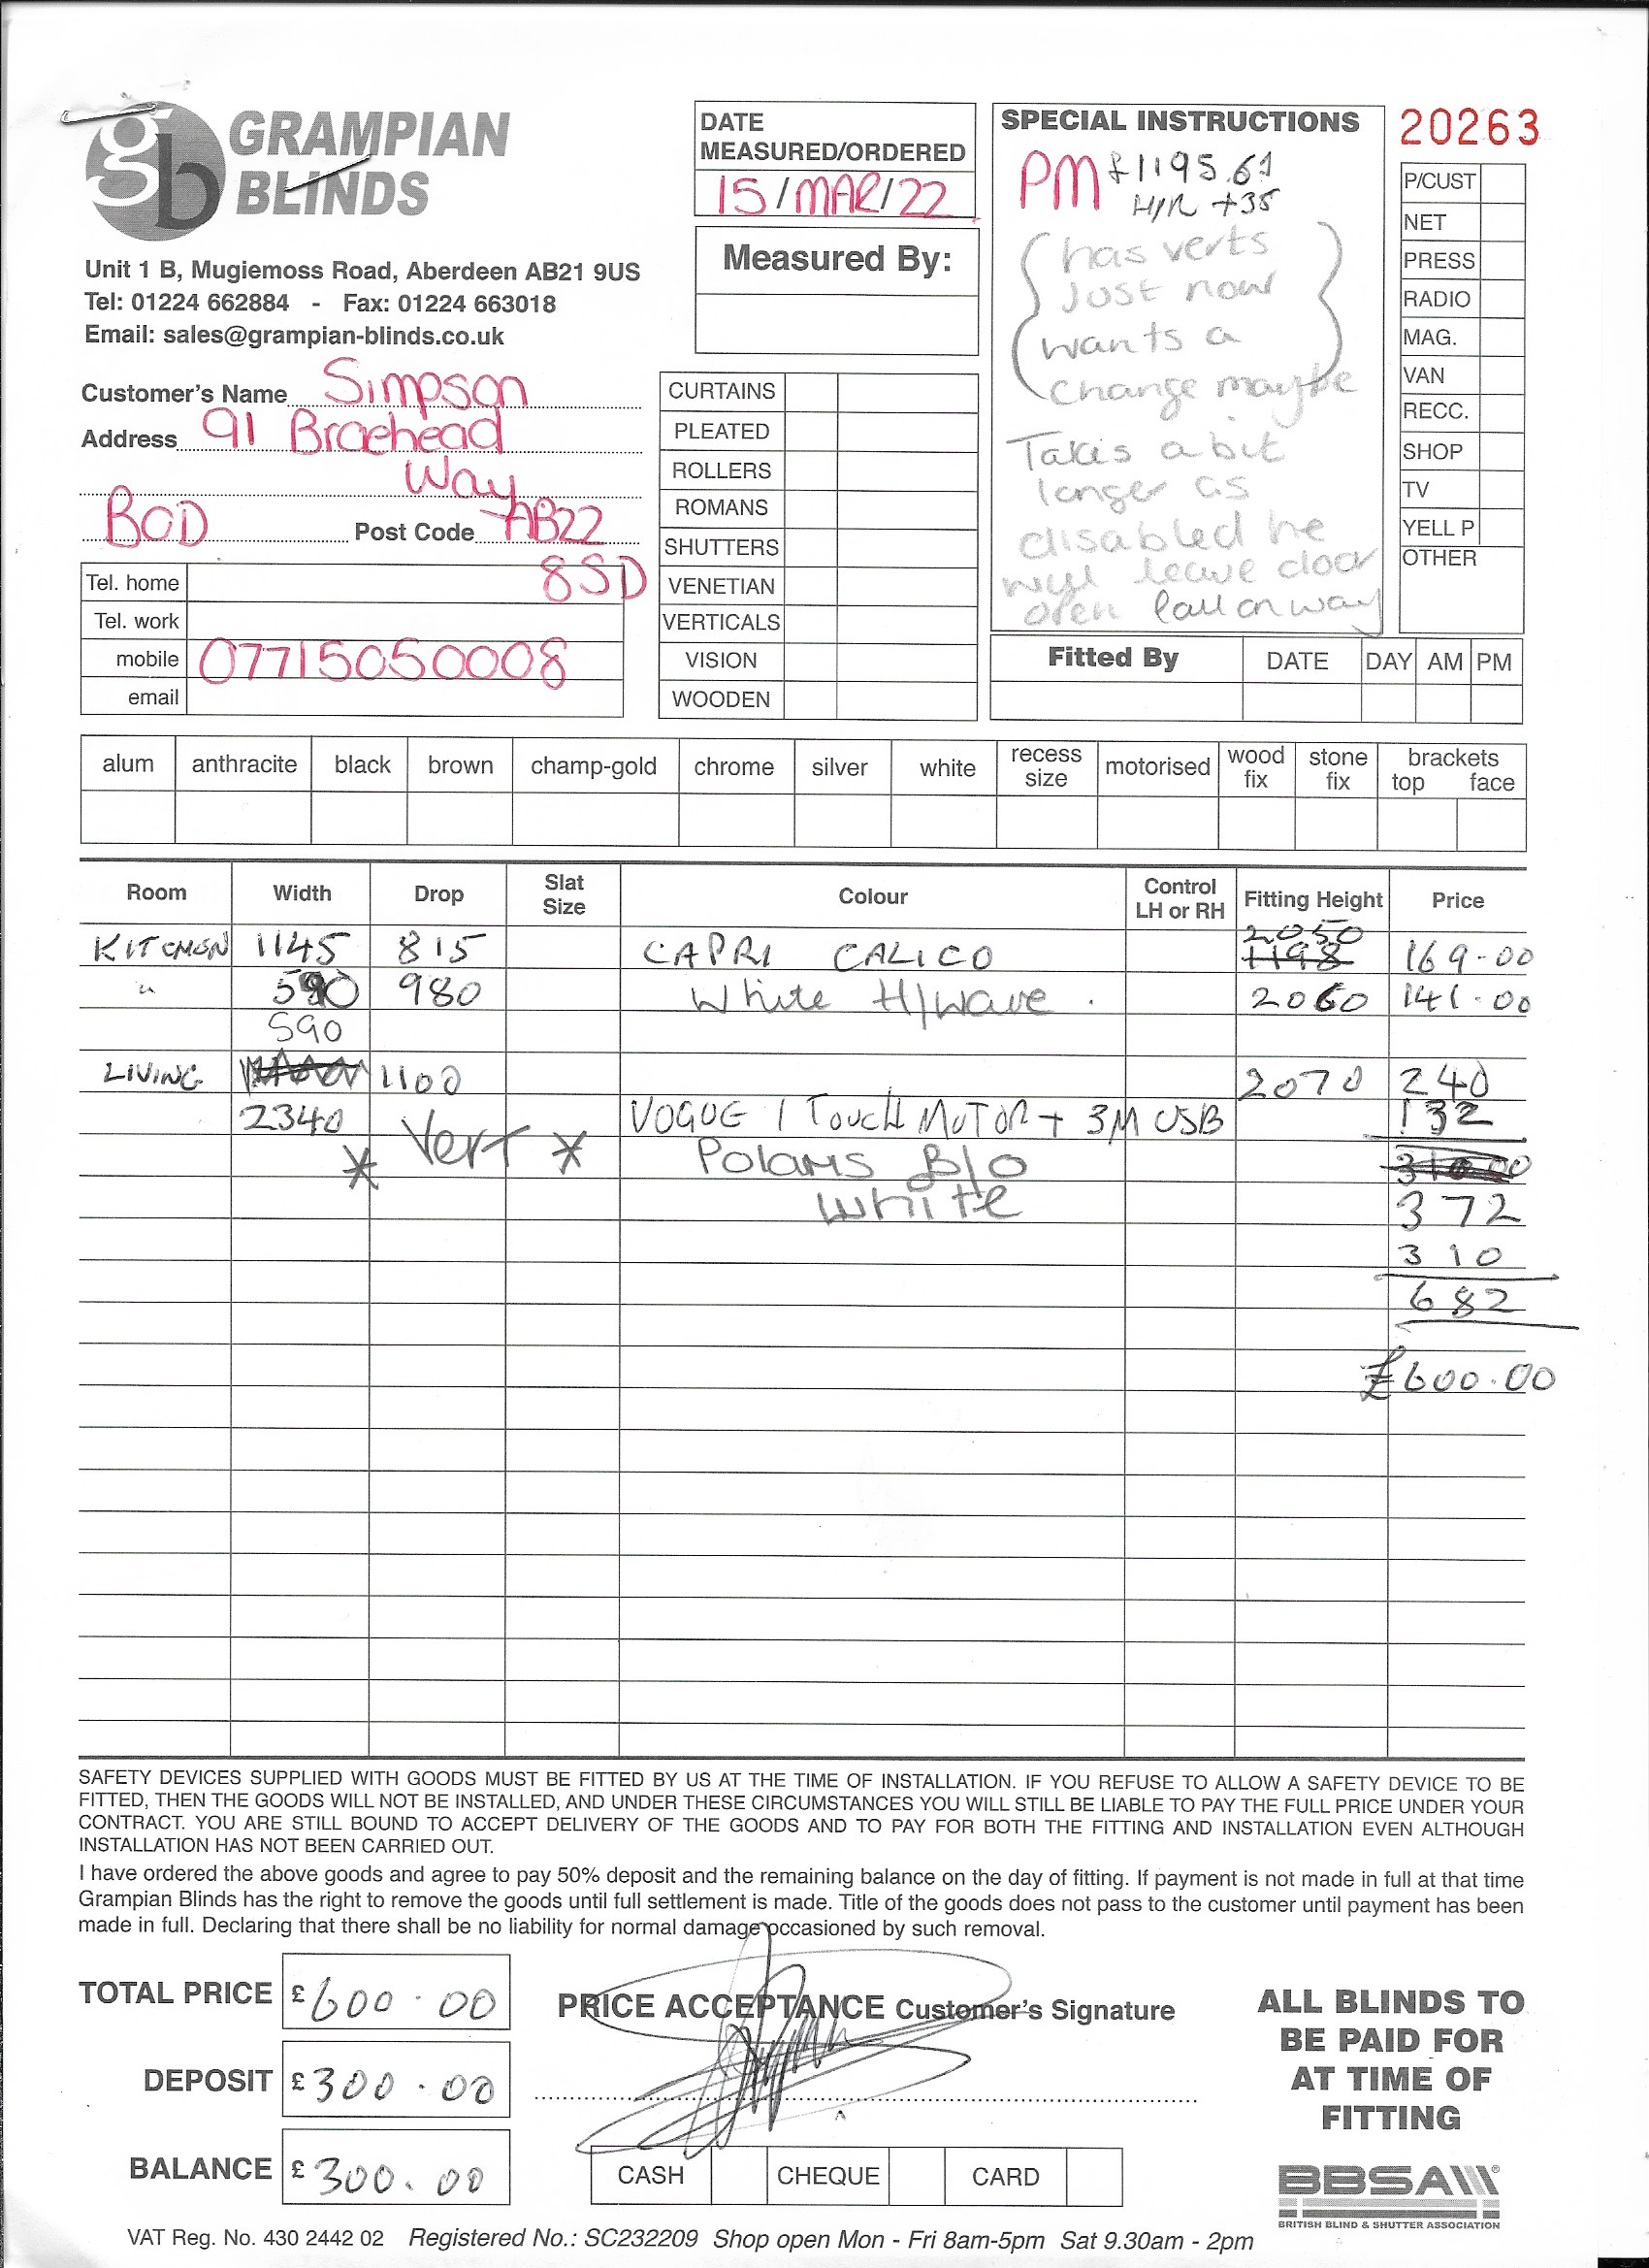 GRAMPIAN
BLINDS
Unit 1 B, Mugiemoss Road, Aberdeen AB21 9US
Tel: 01224 662884 - Fax: 01224 663018
Email: sales@grampian-blinds.co.uk
Customer's Name Simpson
Address 91 Braehead
Way
BOD Post Code AB22
8SD
Tel. home
Tel. work
mobile 07715050008
email
DATE
MEASURED/ORDERED
15/MAR/22
Measured By:
CURTAINS
PLEATED
ROLLERS
ROMANS
SHUTTERS
VENETIAN
VERTICALS
VISION
WOODEN
SPECIAL INSTRUCTIONS
PM £1195.61
H/R +35
has verts
Just now
wants a
change maybe
Takes a bit
longer as
disabled he
will leave door
open Call on way
20263
P/CUST
NET
PRESS
RADIO
MAG.
VAN
RECC.
SHOP
TV
YELL P
OTHER
Fitted By DATE DAY AM PM
alum anthracite black brown champ-gold chrome silver white recess size motorised wood fix stone fix brackets top face
Room Width Drop Slat Size Colour Control LH or RH Fitting Height Price
2050
KITCHEN 1145 815 CAPRI CALICO 1198 169-00
" 590 980 White H/Wave . 2060 141.00
590
LIVING 1100 2070 240
2340 Vert VOGUE 1 TOUCH MOTOR + 3M USB 132
* * Polaris B/O 310.00
White 372
310
682
£600.00
SAFETY DEVICES SUPPLIED WITH GOODS MUST BE FITTED BY US AT THE TIME OF INSTALLATION. IF YOU REFUSE TO ALLOW A SAFETY DEVICE TO BE
FITTED, THEN THE GOODS WILL NOT BE INSTALLED, AND UNDER THESE CIRCUMSTANCES YOU WILL STILL BE LIABLE TO PAY THE FULL PRICE UNDER YOUR
CONTRACT. YOU ARE STILL BOUND TO ACCEPT DELIVERY OF THE GOODS AND TO PAY FOR BOTH THE FITTING AND INSTALLATION EVEN ALTHOUGH
INSTALLATION HAS NOT BEEN CARRIED OUT.
I have ordered the above goods and agree to pay 50% deposit and the remaining balance on the day of fitting. If payment is not made in full at that time
Grampian Blinds has the right to remove the goods until full settlement is made. Title of the goods does not pass to the customer until payment has been
made in full. Declaring that there shall be no liability for normal damage occasioned by such removal.
TOTAL PRICE £600.00
DEPOSIT £300.00
BALANCE £300.00
PRICE ACCEPTANCE Customer's Signature
CASH CHEQUE CARD
ALL BLINDS TO
BE PAID FOR
AT TIME OF
FITTING
BBSA
BRITISH BLIND & SHUTTER ASSOCIATION
VAT Reg. No. 430 2442 02 Registered No.: SC232209 Shop open Mon - Fri 8am-5pm Sat 9.30am - 2pm